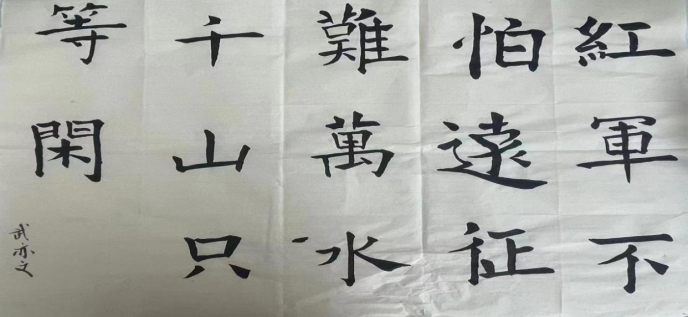 紅軍不
怕遠征
難萬水
千山只
等閑
武亦文